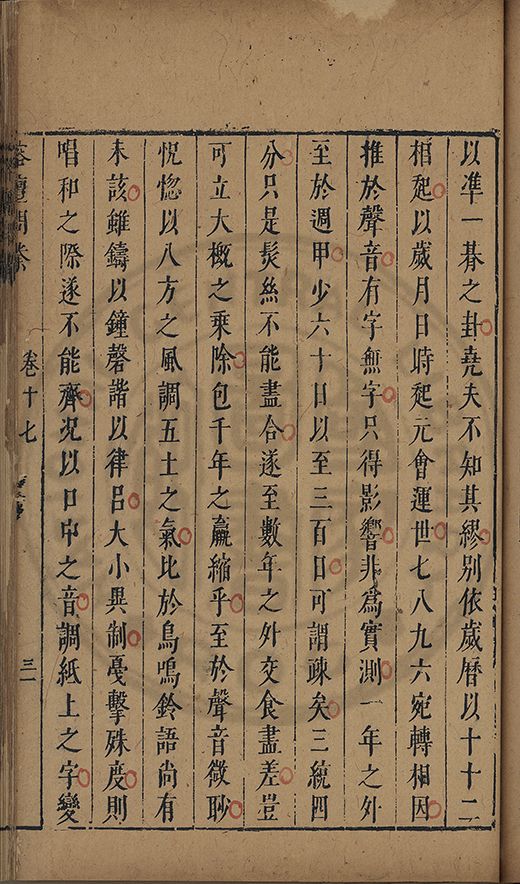 以準一朞之卦堯夫不知其繆別依歲曆以十十二
相起以歲月日時起元會運世七八九六宛轉相因
推於聲音有字無字只得影響非為實測一年之外
至於週甲少六十日以至三百日可謂疎矣三統四
分只是髮絲不能盡合遂至數年之外交食盡差豈
可立大概之乗除包千年之贏縮乎至於聲音微眇
恍惚以八方之風調五土之氣比於鳥鳴鈴語尚有
未該雖鑄以鐘磬諧以律呂大小異制戞擊殊度則
唱和之際遂不能齊况以口中之音調紙上之字變
卷十七
三